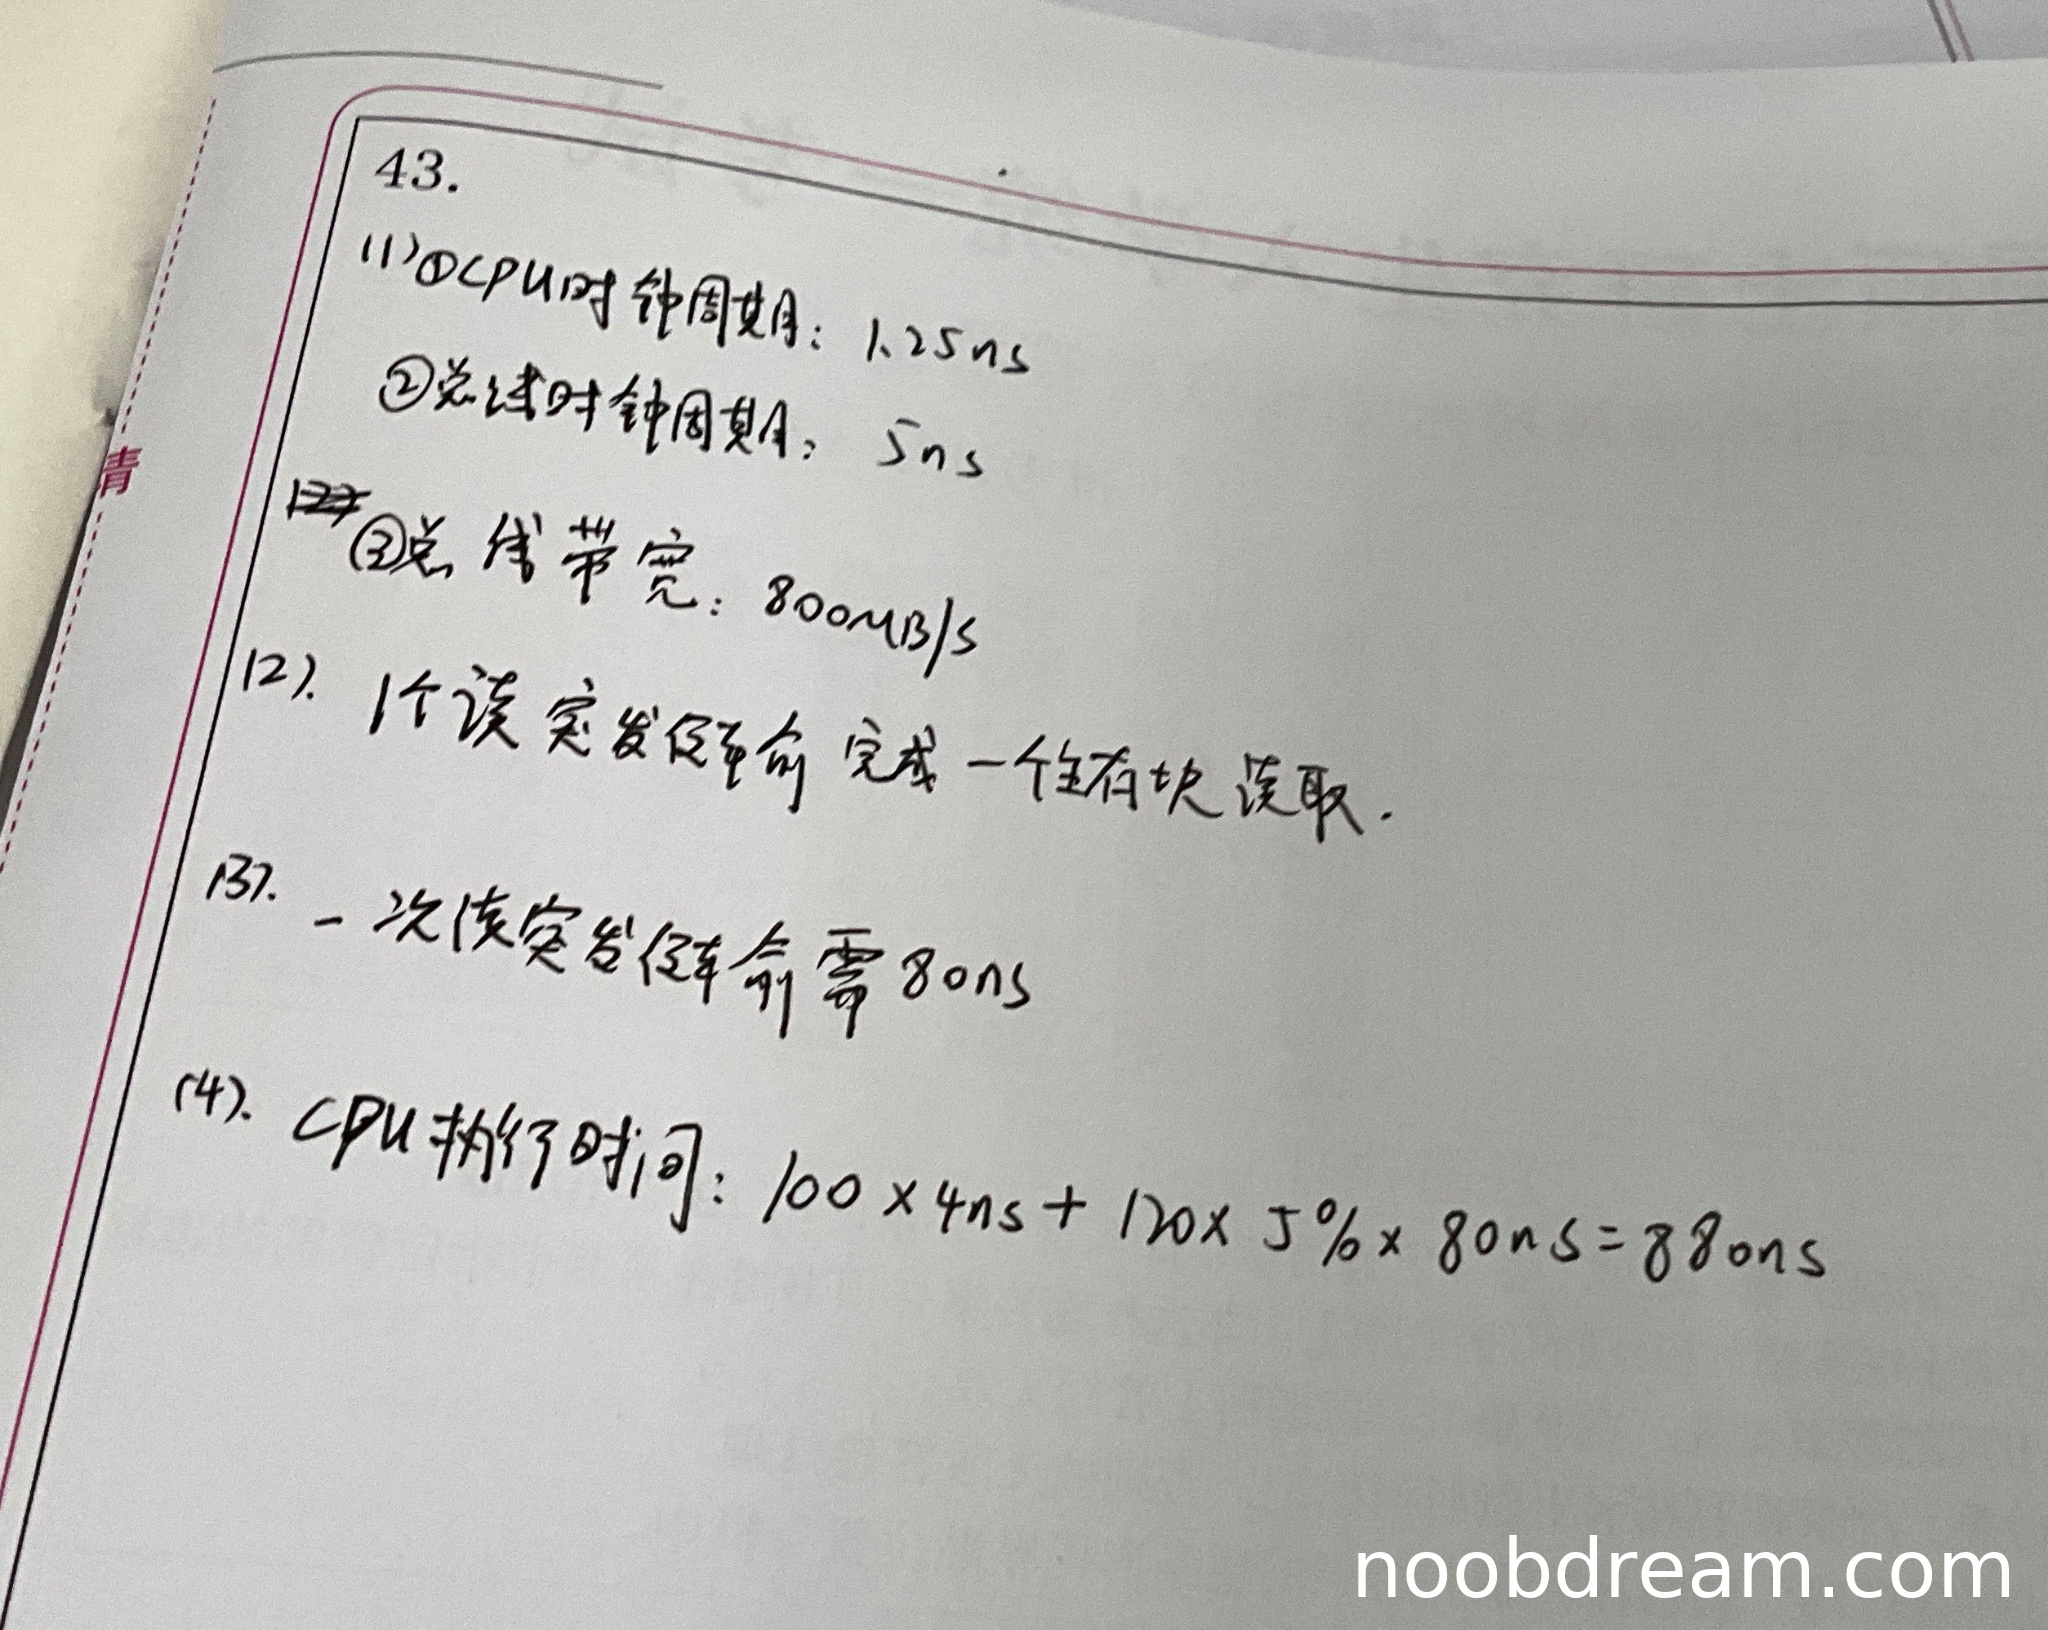 43.
(1)①CPU时钟周期：1.25ns
②总线时钟周期：5ns
③总线带宽：800MB/s
(2).1个读突发传输完成一个主存块读取.
(3).一次读突发传输需80ns
(4).CPU执行时间：100×4ns+120×5%×80ns=880ns
情
noobdream.com